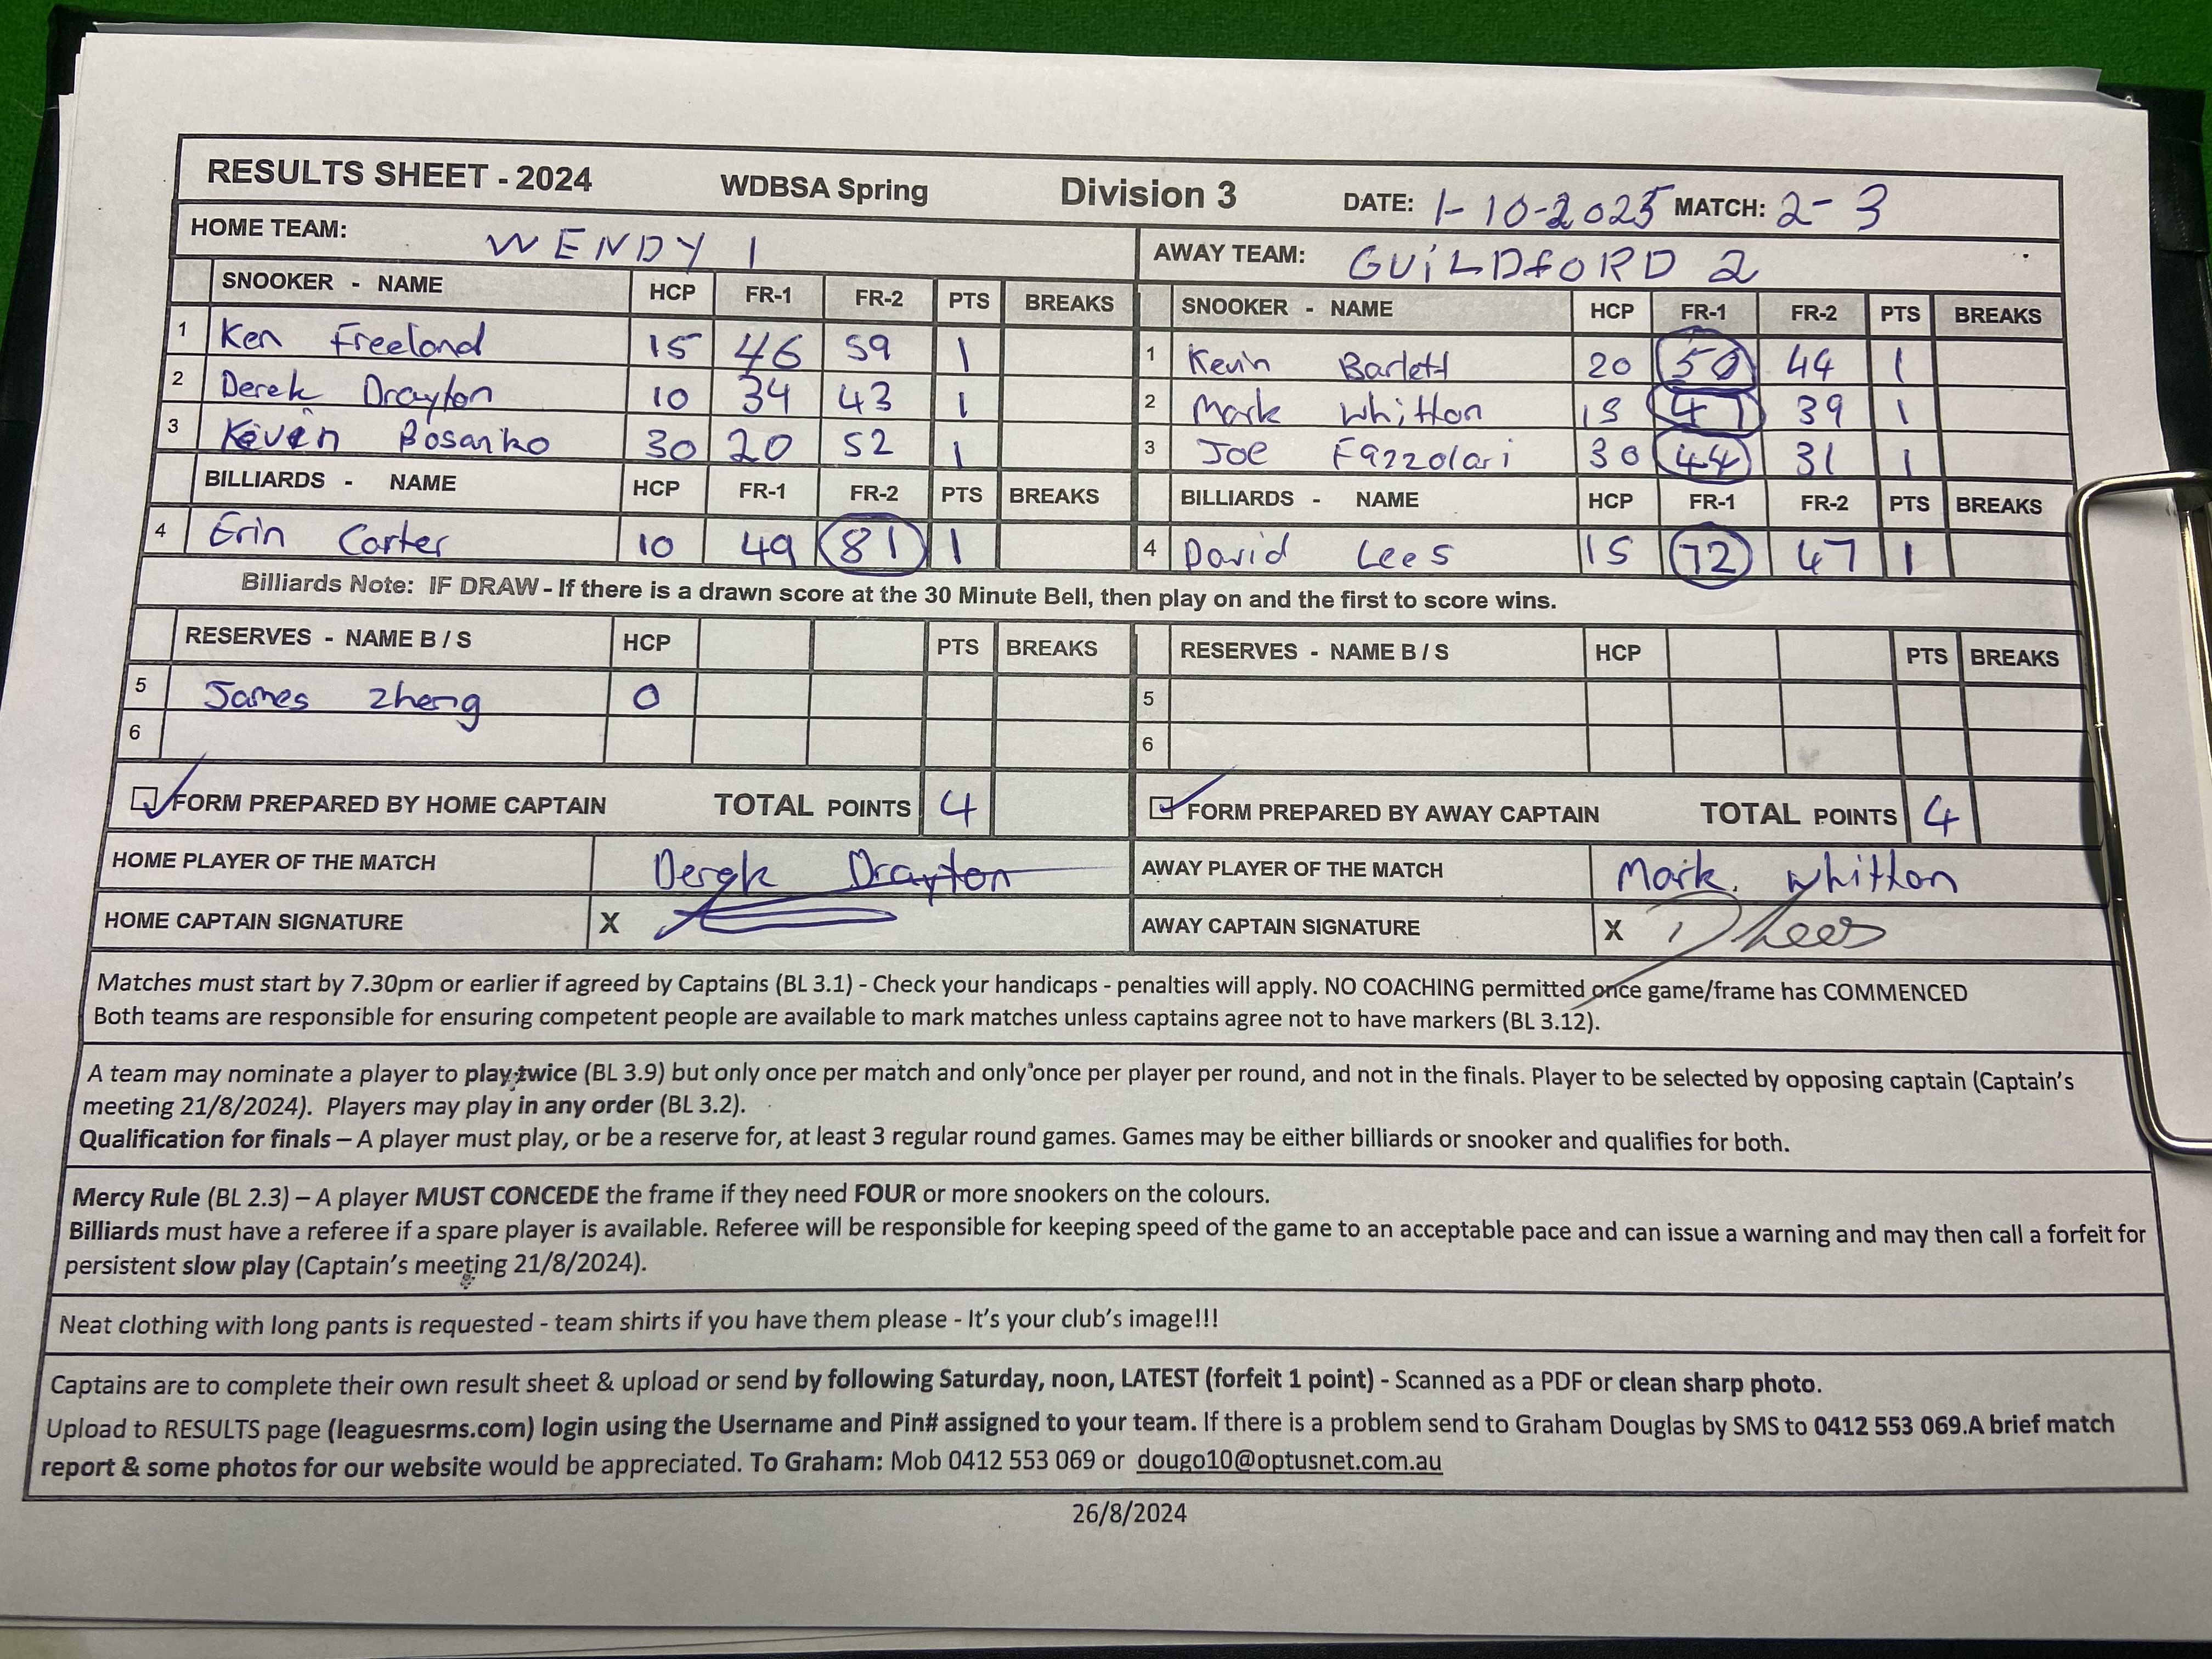 RESULTS SHEET - 2024 WDBSA Spring Division 3 DATE: 1-10-2025 MATCH: 2-3
HOME TEAM: WENDY 1 AWAY TEAM: GUiLDfORD 2
SNOOKER - NAME HCP FR-1 FR-2 PTS BREAKS SNOOKER - NAME HCP FR-1 FR-2 PTS BREAKS
1 Ken Freelond 15 46 59 1 1 Kevin Barlett 20 50 44 1
2 Derek Drayton 10 34 43 1 2 Mark Whitton 15 47 39 1
3 Kevin Bosanko 30 20 52 1 3 Joe Fazzolari 30 44 31 1
BILLIARDS - NAME HCP FR-1 FR-2 PTS BREAKS BILLIARDS - NAME HCP FR-1 FR-2 PTS BREAKS
4 Erin Carter 10 49 81 1 4 David Lees 15 72 47 1
Billiards Note: IF DRAW - If there is a drawn score at the 30 Minute Bell, then play on and the first to score wins.
RESERVES - NAME B / S HCP PTS BREAKS RESERVES - NAME B / S HCP PTS BREAKS
5 James Zheng 0 5
6 6
FORM PREPARED BY HOME CAPTAIN TOTAL POINTS 4 FORM PREPARED BY AWAY CAPTAIN TOTAL POINTS 4
HOME PLAYER OF THE MATCH Derek Drayton AWAY PLAYER OF THE MATCH Mark. Whitton
HOME CAPTAIN SIGNATURE X AWAY CAPTAIN SIGNATURE X D Lees
Matches must start by 7.30pm or earlier if agreed by Captains (BL 3.1) - Check your handicaps - penalties will apply. NO COACHING permitted once game/frame has COMMENCED
Both teams are responsible for ensuring competent people are available to mark matches unless captains agree not to have markers (BL 3.12).
A team may nominate a player to play twice (BL 3.9) but only once per match and only once per player per round, and not in the finals. Player to be selected by opposing captain (Captain's
meeting 21/8/2024). Players may play in any order (BL 3.2).
Qualification for finals – A player must play, or be a reserve for, at least 3 regular round games. Games may be either billiards or snooker and qualifies for both.
Mercy Rule (BL 2.3) – A player MUST CONCEDE the frame if they need FOUR or more snookers on the colours.
Billiards must have a referee if a spare player is available. Referee will be responsible for keeping speed of the game to an acceptable pace and can issue a warning and may then call a forfeit for
persistent slow play (Captain's meeting 21/8/2024).
Neat clothing with long pants is requested - team shirts if you have them please - It's your club's image!!!
Captains are to complete their own result sheet & upload or send by following Saturday, noon, LATEST (forfeit 1 point) - Scanned as a PDF or clean sharp photo.
Upload to RESULTS page (leaguesrms.com) login using the Username and Pin# assigned to your team. If there is a problem send to Graham Douglas by SMS to 0412 553 069.A brief match
report & some photos for our website would be appreciated. To Graham: Mob 0412 553 069 or dougo10@optusnet.com.au
26/8/2024